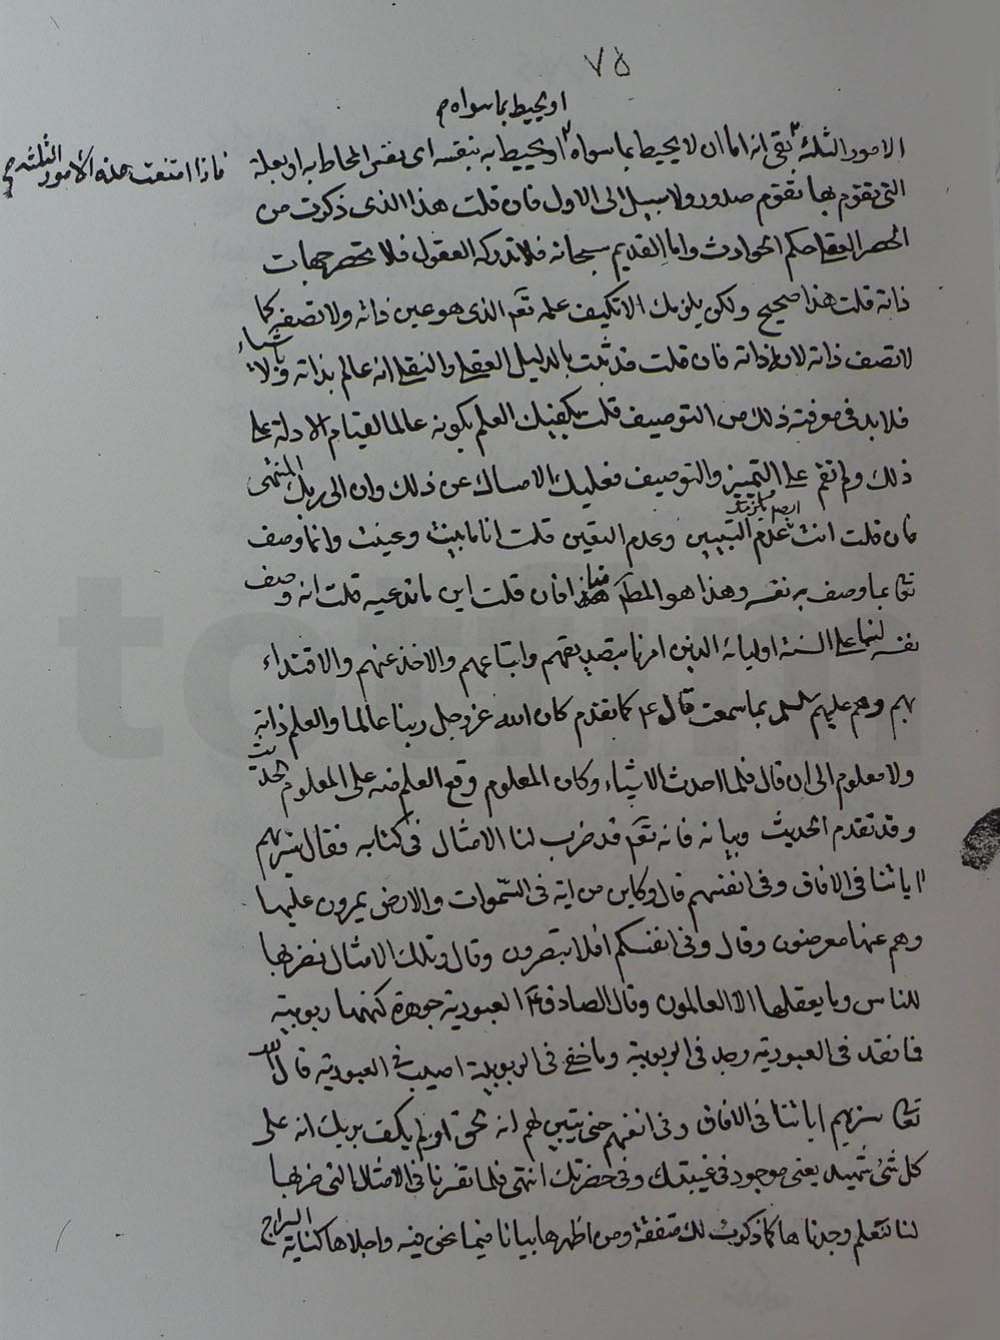 ٧٥
او يحيط بما سواه م
الامور الثلثة بقى انه اما ان لا يحيط بما سواه او يحيط به بنفسه اى بنفس المحاط به او بعلة
فاذا امتنعت هذه الامور الثلثة م
التى يقوم بها تقوم صدور ولا سبيل الى الاول فان قلت هذا الذى ذكرت من
الحصر العقلى حكم الحوادث واما القديم سبحانه فلا تدركه العقول فلا تحصر جهات
ذاته قلت هذا صحيح ولكن يلزمك الا تكيف علمه تعَ الذى هو عين ذاته ولا تصفه كما
لا تصف ذاته لانه ذاته فان قلت قد ثبت بالدليل العقلى والنقلى انه عالم بذاته وبالاشياء
فلا بد فى معرفته ذلك من التوصيف قلت يكفيك العلم بكونه عالما لقيام الادلة على
ذلك ولم تقم على التمييز والتوصيف فعليك الامساك عن ذلك وان الى ربك المنتهى
فان قلت انت ايضا يلزمك عدم التبيين وعدم التعيين قلت انا ما بينت وعينت وانما وصف
تعالى بما وصف به نفسه وهذا هو المط فان قلت اين ما تدعيه قلت انه وصف
نفسه لنا على السنة اوليائه الذين امرنا بتصديقهم واتباعهم والاخذ عنهم والاقتداء
بهم وهم عليهم السلم بما سمعت قال ع كما تقدم كان الله عز وجل ربنا عالما والعلم ذاته
ولا معلوم الى ان قال فلما احدث الاشياء وكان المعلوم وقع العلم منه على المعلوم الحديث
وقد تقدم الحديث وبيانه فانه تعَ قد ضرب لنا الامثال فى كتابه فقال سنريهم
اياتنا فى الافاق وفى انفسهم قال وكاين من اية فى السّموات والارض يمرون عليها
وهم عنها معرضون وقال وفى انفسكم افلا تبصرون وقال وتلك الامثال نضربها
للناس وما يعقلها الا العالمون وقال الصادق ع العبودية جوهرة كنهها ربوبية
فما فقد فى العبودية وجد فى الربوبية وما خفى فى الربوبية اصيب فى العبودية قال الله
تعالى سنريهم اياتنا فى الافاق وفى انفسهم حتى يتبين لهم انه الحق او لم يكف بربك انه على
كل شئ شهيد يعنى موجود فى غيبتك وفى حضرتك انتهى فلما نظرنا فى الامثال التى ضربها
لنا لنتعلم وجدناها كما ذكرت لك متفقة ومن اظهرها بيانا فيما نحن فيه واجلاها كناية السراج